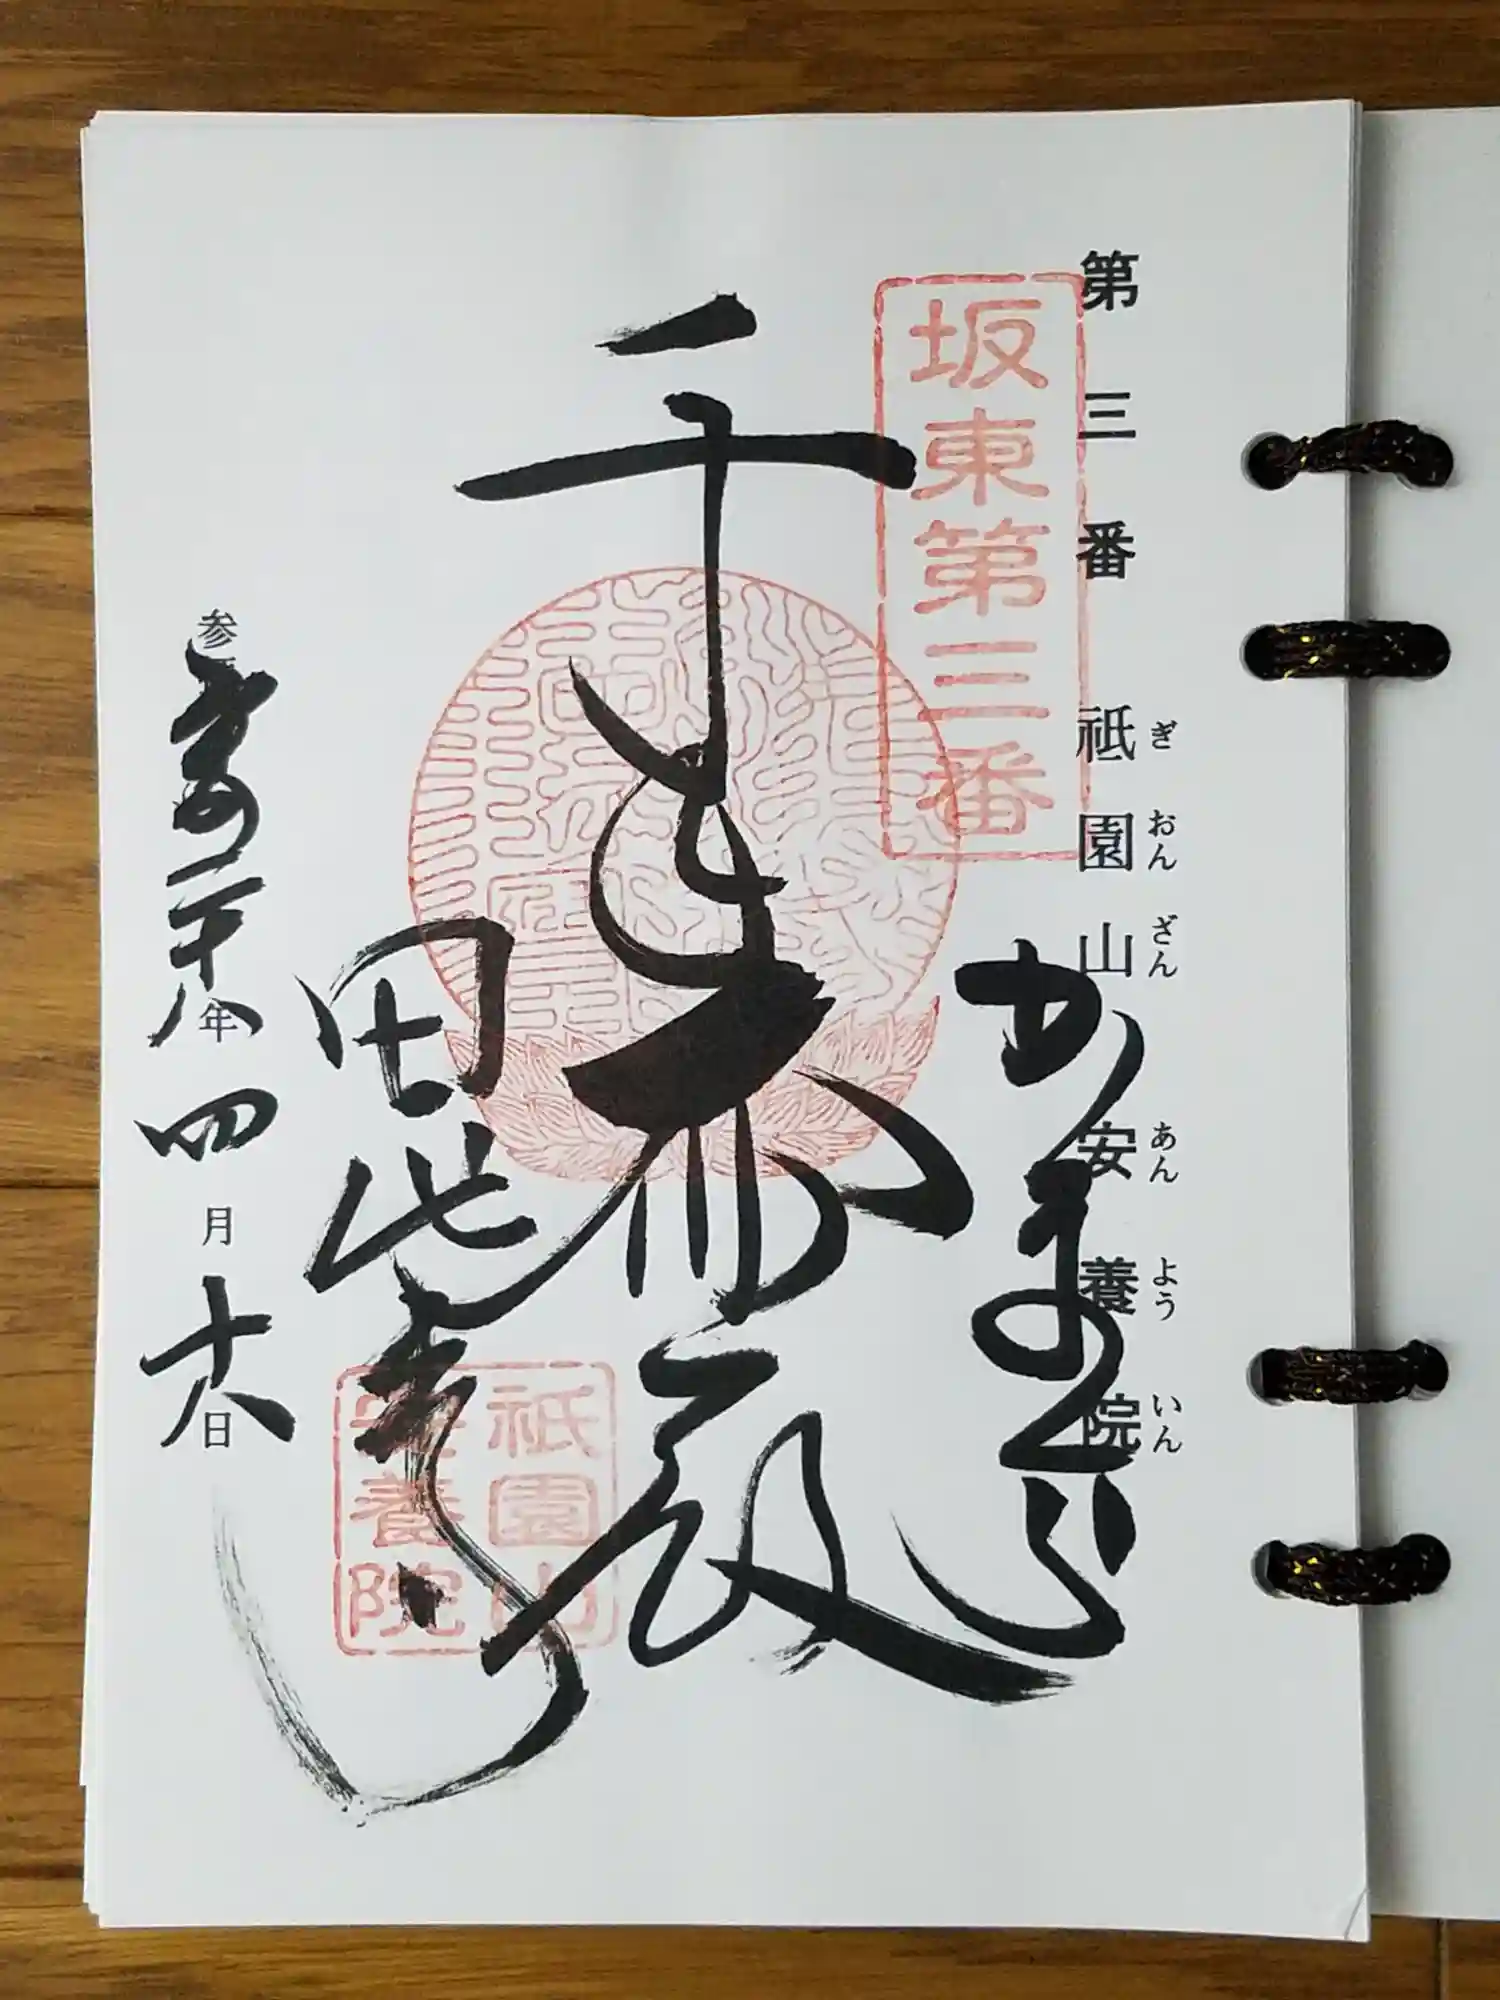 第三番 祇園山 安養院
ぎおんざん あんよういん
坂東第三番
かまくら
千手殿
田代寺
祇園山
安養院
参 二十八年四月十八日